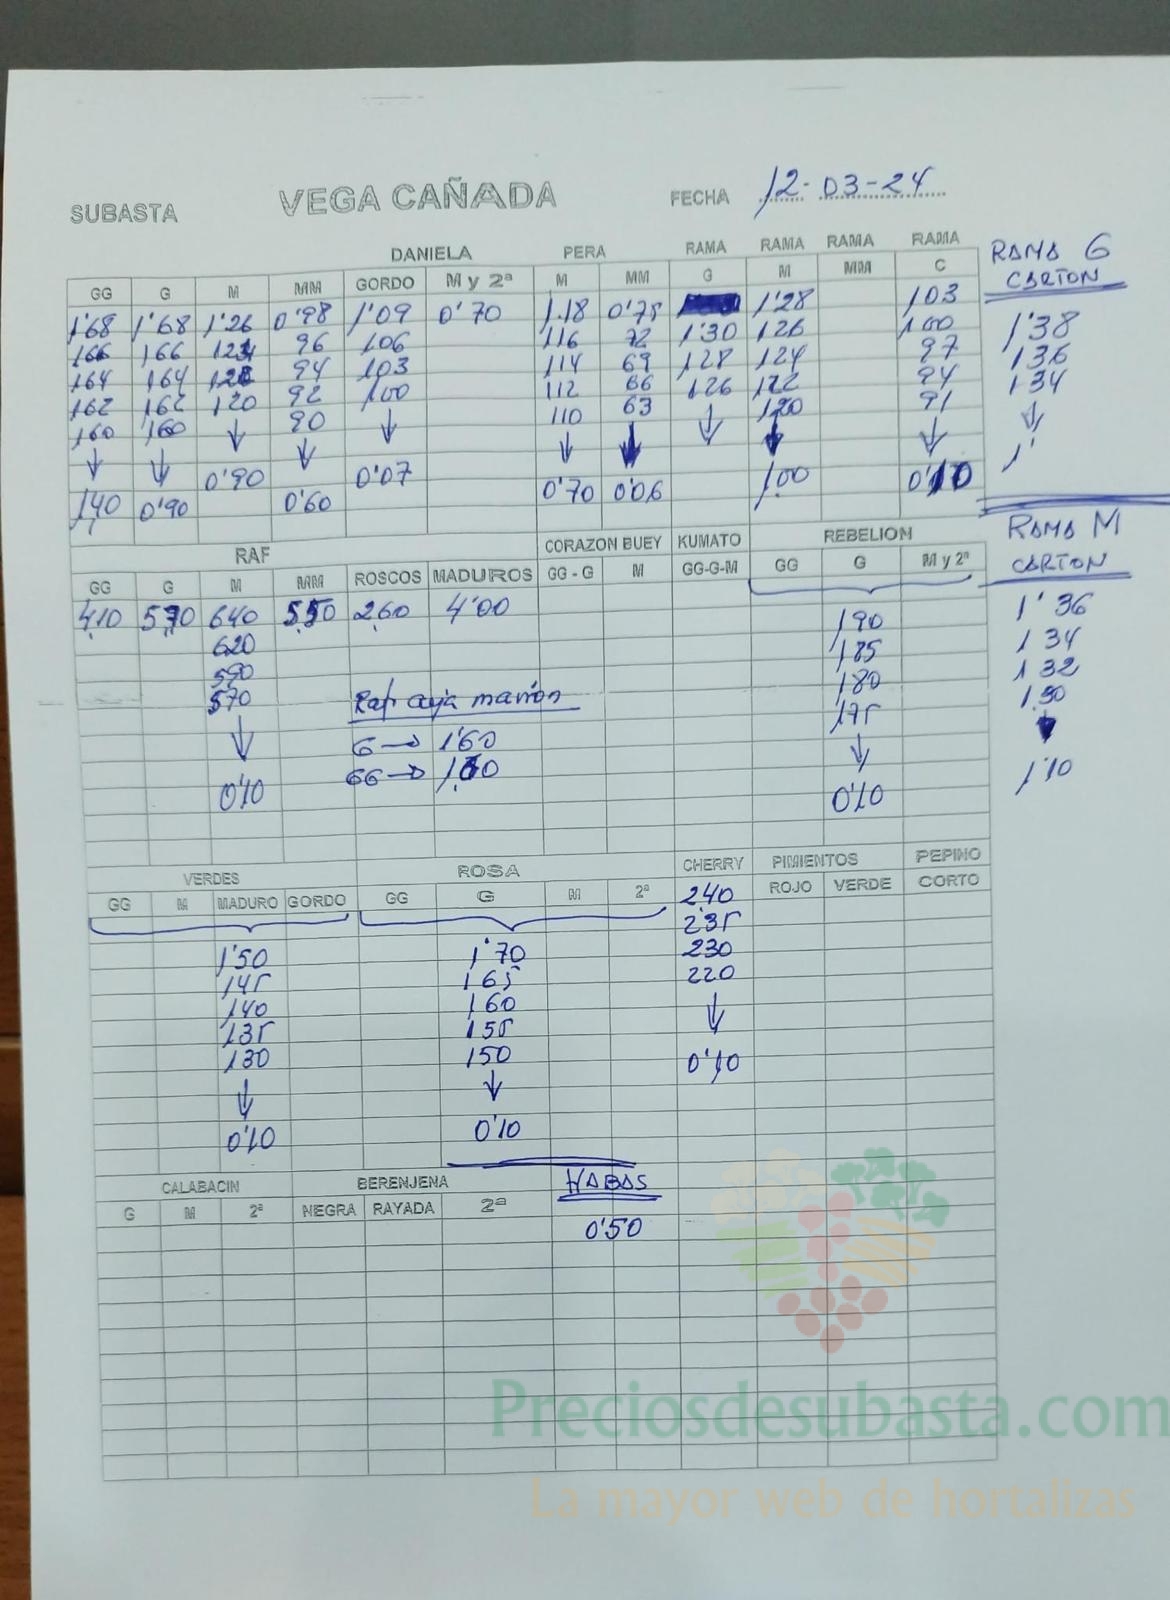 SUBASTA VEGA CAÑADA FECHA 12-03-24
DANIELA PERA RAMA RAMA RAMA RAMA RAMA G
GG G M MM GORDO M y 2ª M MM G M MM C CARTON
1'68 1'68 1'26 0'98 1'09 0'70 1.18 0'75 1'28 103 1'38
166 166 124 96 106 116 72 1'30 126 100 136
164 164 122 94 103 114 69 128 124 97 134
162 162 120 92 100 112 66 126 122 94
160 160 90 110 63 120 91
0'90 0'07 1.00 0'10 1'
140 0'90 0'60 0'70 0'06
RAF CORAZON BUEY KUMATO REBELION RAMA M
GG G M MM ROSCOS MADUROS GG - G M GG-G-M GG G M y 2ª CARTON
4.10 570 640 5.50 2.60 4'00 190 1'36
620 185 134
590 180 132
570 Raf caja marrón 175 1.30
G → 1'60
GG → 1.60 1'10
0'10 0'10
VERDES ROSA CHERRY PIMIENTOS PEPINO
GG M MADURO GORDO GG G M 2ª 240 ROJO VERDE CORTO
235
1'50 1'70 230
145 165 220
140 160
135 155
130 150 0'10
0'10 0'10
CALABACIN BERENJENA HABAS
G M 2ª NEGRA RAYADA 2ª
0'50
Preciosdesubasta.com
La mayor web de hortalizas